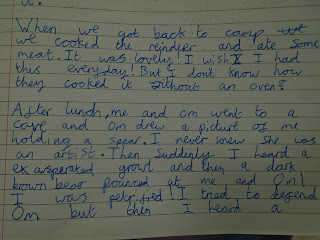 it.
When we got back to camp
we cooked the reindeer and ate some
meat. It was lovely! I wish I had
this everyday! But I dont know how
they cooked it without an oven?
After lunch, me and om went to a
cave and Om drew a picture of me
holding a spear. I never knew she was
an artist. Then suddenly I heard a
exasperated growl and then a dark
brown bear pounced at me and Om!
I was petrified! I tried to defend
Om but then I heard a